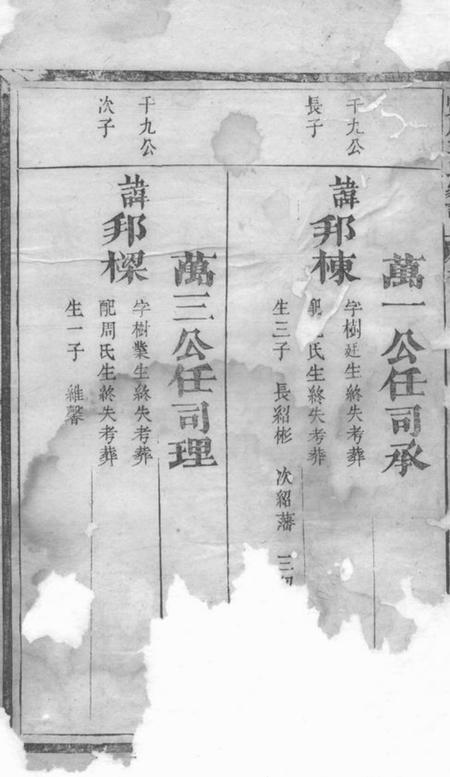 千九公
長子
萬一公任司承
諱邦棟
字樹廷生終失考葬
配 氏生終失考葬
生三子 長紹彬 次紹藩 三紹
千九公
次子
萬三公任司理
諱邦樑
字樹業生終失考葬
配周氏生終失考葬
生一子 維馨